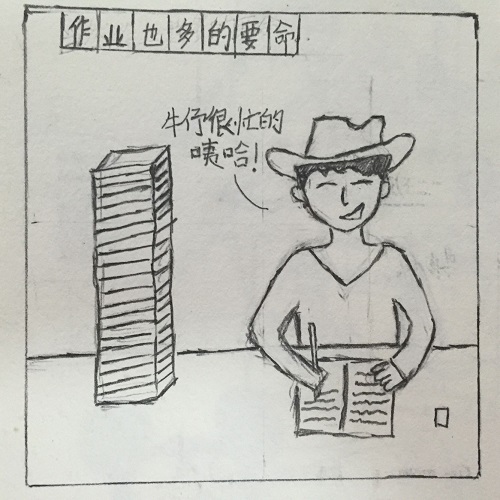 作业也多的要命
牛仔很忙的
咦哈!